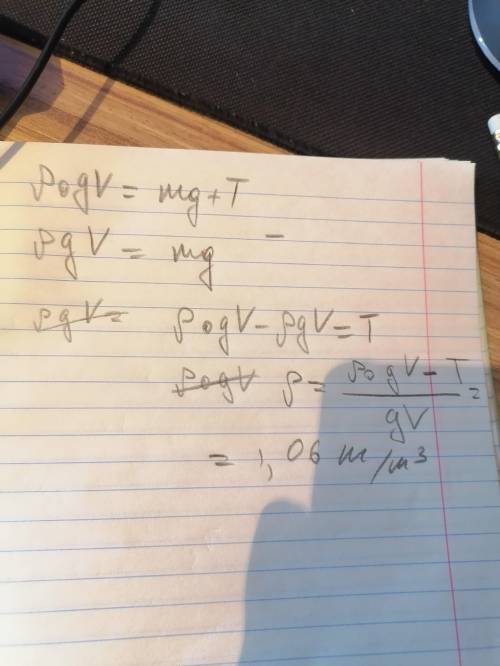 ρ₀gV = mg + T
ρgV = mg -
ρgV = ρ₀gV - ρgV = T
ρ₀gV ρ = (ρ₀gV - T)/gV =
= 1,06 m/m³